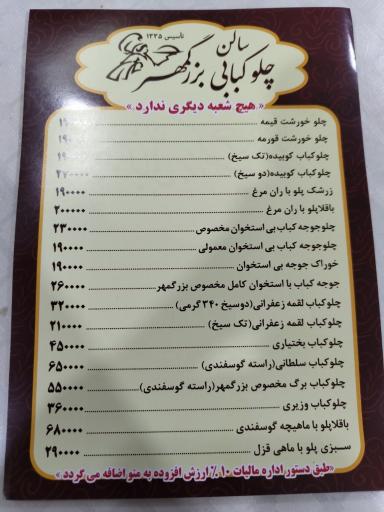 تاسیس ۱۳۳۵
سالن
چلوکبابی بزرگمهر
«هیچ شعبه دیگری ندارد»
چلو خورشت قیمه
چلو خورشت قورمه
چلوکباب کوبیده(تک سیخ)
چلوکباب کوبیده(دو سیخ) ۲۷۰۰۰۰
زرشک پلو با ران مرغ ۱۹۰۰۰۰
باقلاپلو با ران مرغ ۲۰۰۰۰۰
چلوجوجه کباب بی استخوان مخصوص ۲۳۰۰۰۰
چلوجوجه کباب بی استخوان معمولی ۱۹۰۰۰۰
خوراک جوجه بی استخوان ۱۹۰۰۰۰
جوجه کباب با استخوان کامل مخصوص بزرگمهر ۲۶۰۰۰۰
چلوکباب لقمه زعفرانی(دوسیخ ۳۴۰ گرمی) ۳۲۰۰۰۰
چلوکباب لقمه زعفرانی(تک سیخ) ۲۱۰۰۰۰
چلوکباب بختیاری ۴۵۰۰۰۰
چلوکباب سلطانی(راسته گوسفندی) ۶۵۰۰۰۰
چلوکباب برگ مخصوص بزرگمهر(راسته گوسفندی) ۵۵۰۰۰۰
چلوکباب وزیری ۳۶۰۰۰۰
باقلاپلو با ماهیچه گوسفندی ۶۸۰۰۰۰
سبزی پلو با ماهی قزل ۲۹۰۰۰۰
«طبق دستور اداره مالیات ۱۰٪ ارزش افزوده به منو اضافه می گردد»